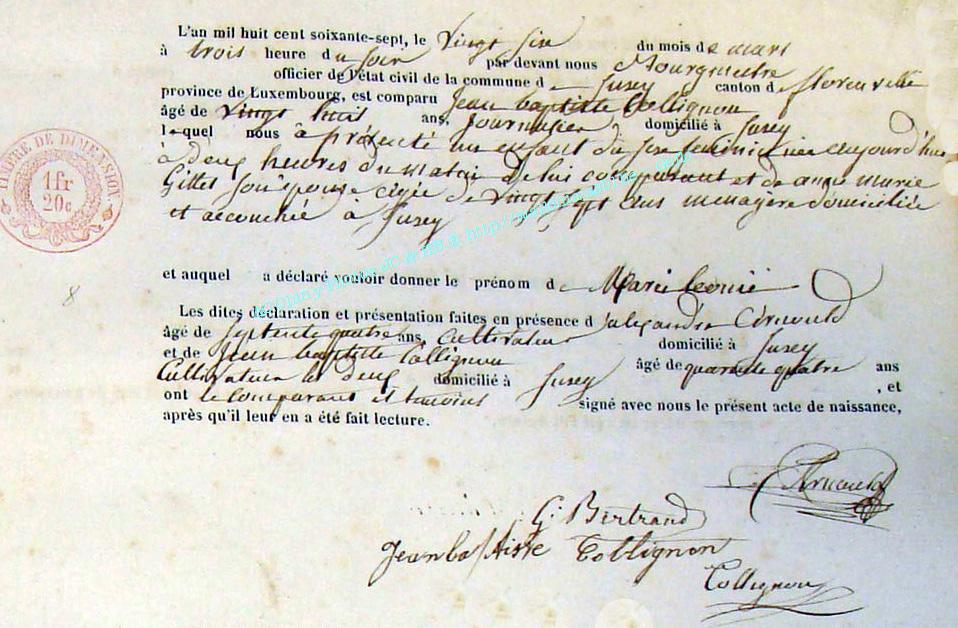 L'an mil huit cent soixante-sept, le Vingt Six du mois de mars
à trois heure du soir par devant nous Bourgmestre
officier de l'état civil de la commune de Jusey canton de florenville
province de Luxembourg, est comparu Jean baptiste Collignon
âgé de vingt huit ans, Journalier domicilié à Jusey
lequel nous à présenté un enfant du sexe feminin né aujourd'hui
à deux heures du matin de lui comparant et de anne marie
Gillet son épouse agée de vingt sept ans menagere domiciliée
et accouchée à Jusey
et auquel a déclaré vouloir donner le prénom de Marie leonie
Les dites déclaration et présentation faites en présence d'alexandre Arnould
âgé de septente quatre ans, cultivateur domicilié à Jusey
et de Jean baptiste Collignon âgé de quarante quatre ans
Cultivateur les deux domicilié à Jusey , et
ont le comparant et temoins signé avec nous le présent acte de naissance,
après qu'il leur en a été fait lecture.
TIMBRE DE DIMENSION.
1 fr
20c
8
Arnould
G. Bertrand
Jean ba/tiste Collignon
Collignon